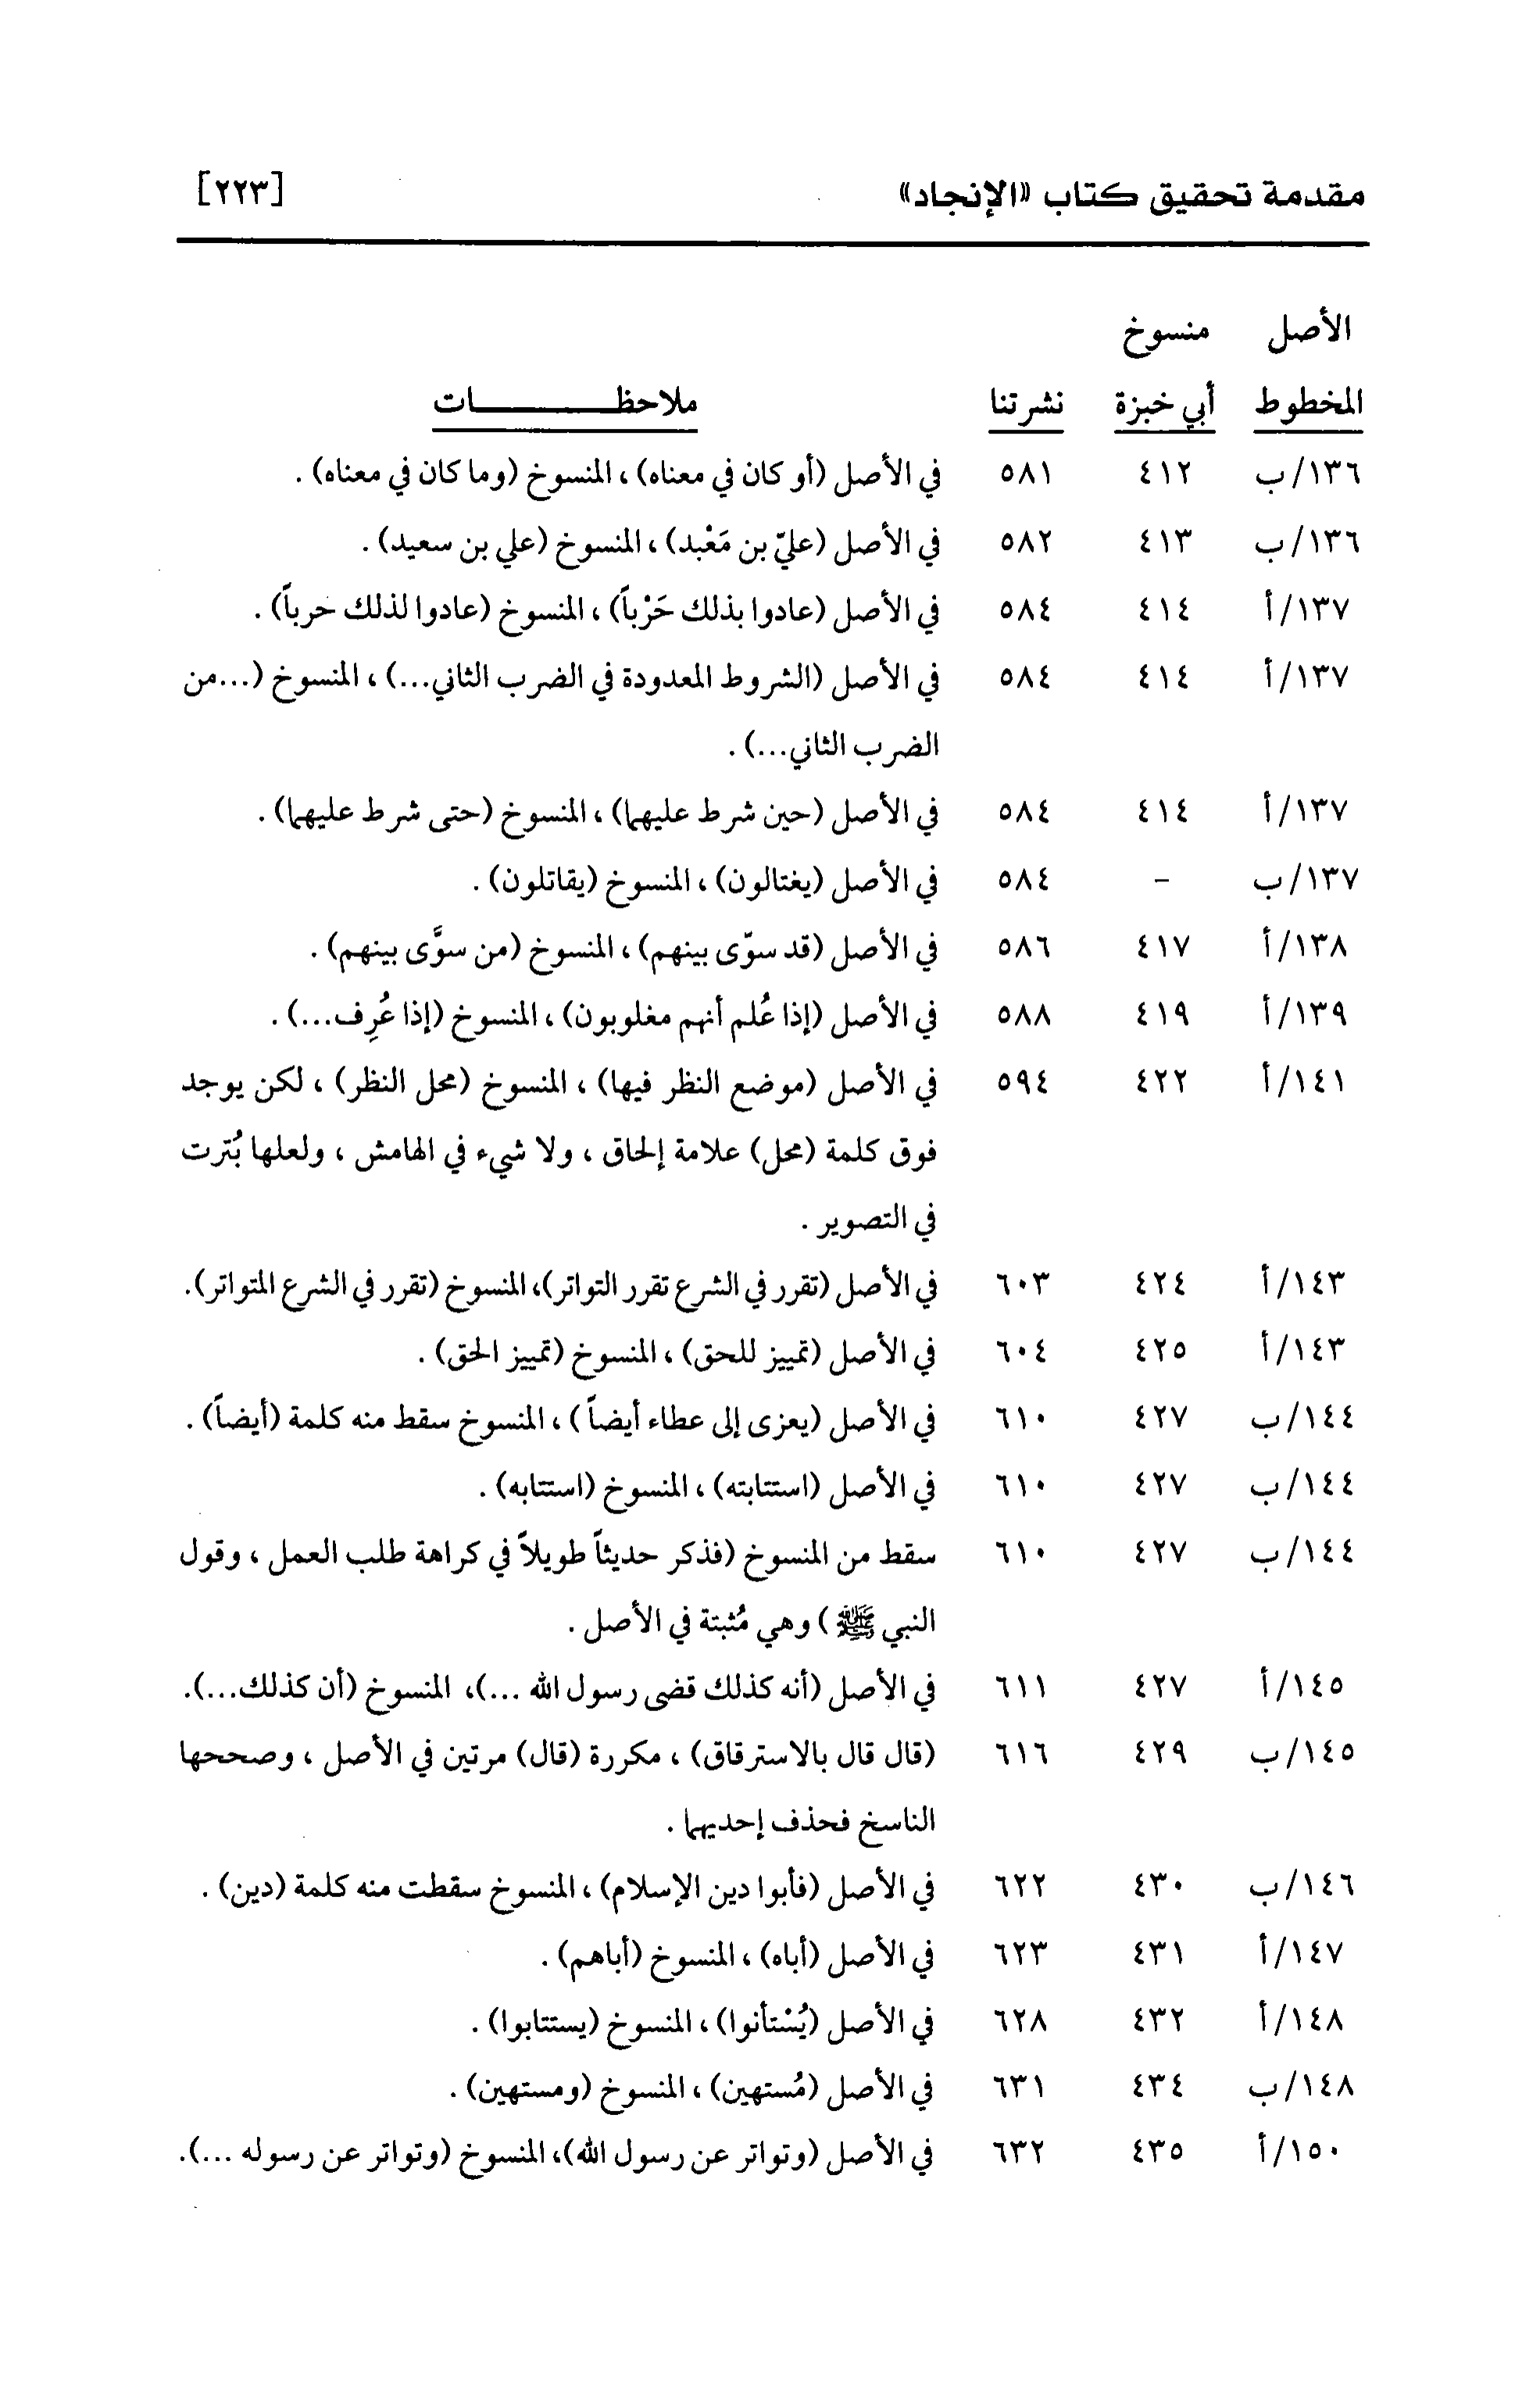 مقدمة تحقيق كتاب «الإنجاد» [٢٢٣]
الأصل منسوخ
المخطوط أبي خبزة نشرتنا ملاحظـــــــــات
١٣٦/ب ٤١٢ ٥٨١ في الأصل (أو كان في معناه) ، المنسوخ (وما كان في معناه) .
١٣٦/ب ٤١٣ ٥٨٢ في الأصل (عليّ بن مَعْبد) ، المنسوخ (علي بن سعيد) .
١٣٧/أ ٤١٤ ٥٨٤ في الأصل (عادوا بذلك حَرْباً) ، المنسوخ (عادوا لذلك حرباً) .
١٣٧/أ ٤١٤ ٥٨٤ في الأصل (الشروط المعدودة في الضرب الثاني...) ، المنسوخ (...من
الضرب الثاني...) .
١٣٧/أ ٤١٤ ٥٨٤ في الأصل (حين شرط عليهما) ، المنسوخ (حتى شرط عليهما) .
١٣٧/ب – ٥٨٤ في الأصل (يغتالون) ، المنسوخ (يقاتلون) .
١٣٨/أ ٤١٧ ٥٨٦ في الأصل (قد سوّى بينهم) ، المنسوخ (من سوَّى بينهم) .
١٣٩/أ ٤١٩ ٥٨٨ في الأصل (إذا عُلم أنهم مغلوبون) ، المنسوخ (إذا عُرِف...) .
١٤١/أ ٤٢٢ ٥٩٤ في الأصل (موضع النظر فيها) ، المنسوخ (محل النظر) ، لكن يوجد
فوق كلمة (محل) علامة إلحاق ، ولا شيء في الهامش ، ولعلها بُترت
في التصوير .
١٤٣/أ ٤٢٤ ٦٠٣ في الأصل (تقرر في الشرع تقرر التواتر)، المنسوخ (تقرر في الشرع المتواتر).
١٤٣/أ ٤٢٥ ٦٠٤ في الأصل (تمييز للحق) ، المنسوخ (تمييز الحق) .
١٤٤/ب ٤٢٧ ٦١٠ في الأصل (يعزى إلى عطاء أيضاً) ، المنسوخ سقط منه كلمة (أيضاً) .
١٤٤/ب ٤٢٧ ٦١٠ في الأصل (استتابته) ، المنسوخ (استتابه) .
١٤٤/ب ٤٢٧ ٦١٠ سقط من المنسوخ (فذكر حديثاً طويلاً في كراهة طلب العمل ، وقول
النبي ﷺ) وهي مُثبتة في الأصل .
١٤٥/أ ٤٢٧ ٦١١ في الأصل (أنه كذلك قضى رسول الله ...)، المنسوخ (أن كذلك...).
١٤٥/ب ٤٢٩ ٦١٦ (قال قال بالاسترقاق) ، مكررة (قال) مرتين في الأصل ، وصححها
الناسخ فحذف إحديهما .
١٤٦/ب ٤٣٠ ٦٢٢ في الأصل (فأبوا دين الإسلام) ، المنسوخ سقطت منه كلمة (دين) .
١٤٧/أ ٤٣١ ٦٢٣ في الأصل (أباه) ، المنسوخ (أباهم) .
١٤٨/أ ٤٣٢ ٦٢٨ في الأصل (يُسْتأنوا) ، المنسوخ (يستتابوا) .
١٤٨/ب ٤٣٤ ٦٣١ في الأصل (مُستهين) ، المنسوخ (ومستهين) .
١٥٠/أ ٤٣٥ ٦٣٢ في الأصل (وتواتر عن رسول الله)، المنسوخ (وتواتر عن رسوله ...).